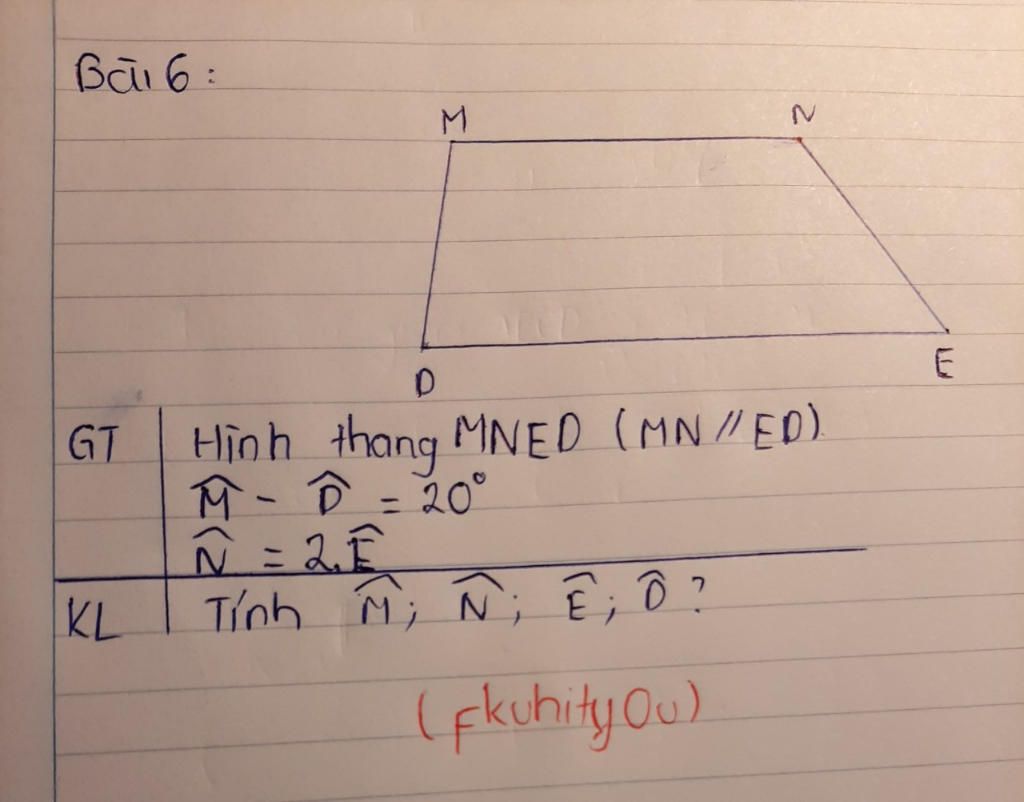 Bài 6:
M N
D E
GT Hình thang MNED (MN//ED).
M̂ - D̂ = 20°
N̂ = 2.Ê
KL Tính M̂; N̂; Ê; D̂ ?
(FkuhityOu)